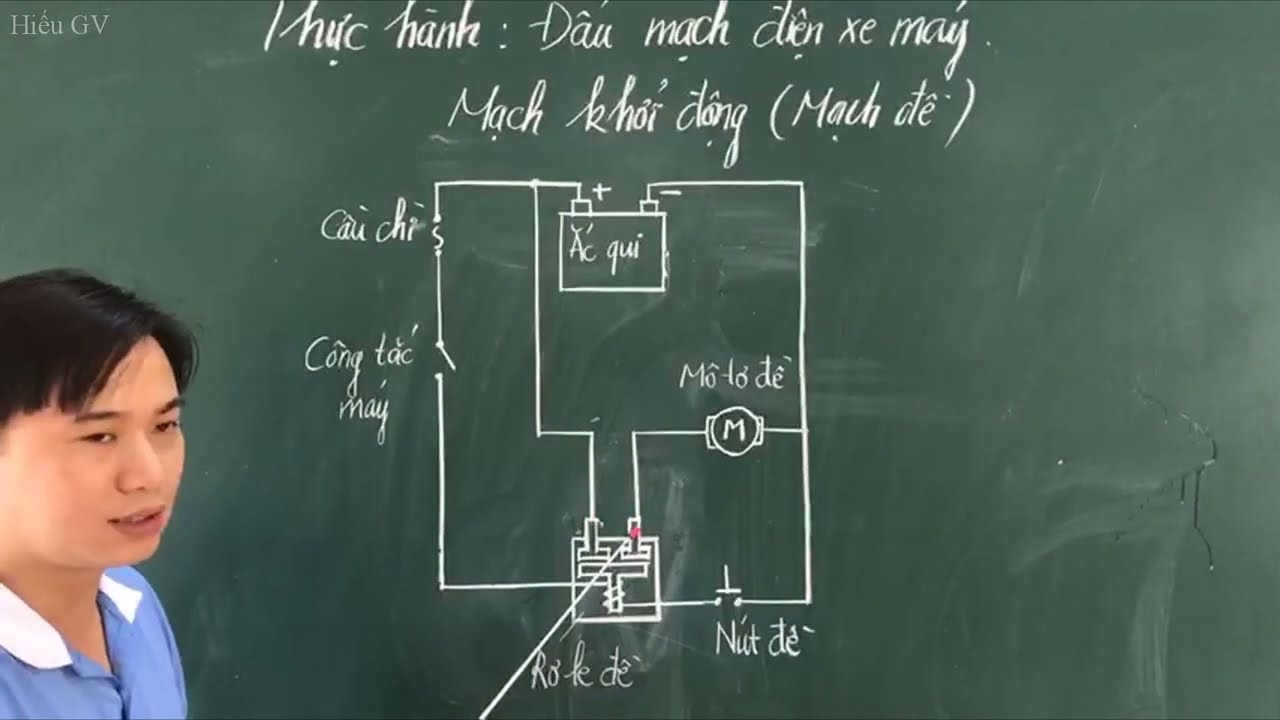 Hiếu GV
Thực hành : Đấu mạch điện xe máy.
Mạch khởi động (Mạch đề)
+ −
Cầu chì
Ắc qui
Công tắc
máy
Mô-tơ đề
M
Nút đề
Rơ le đề